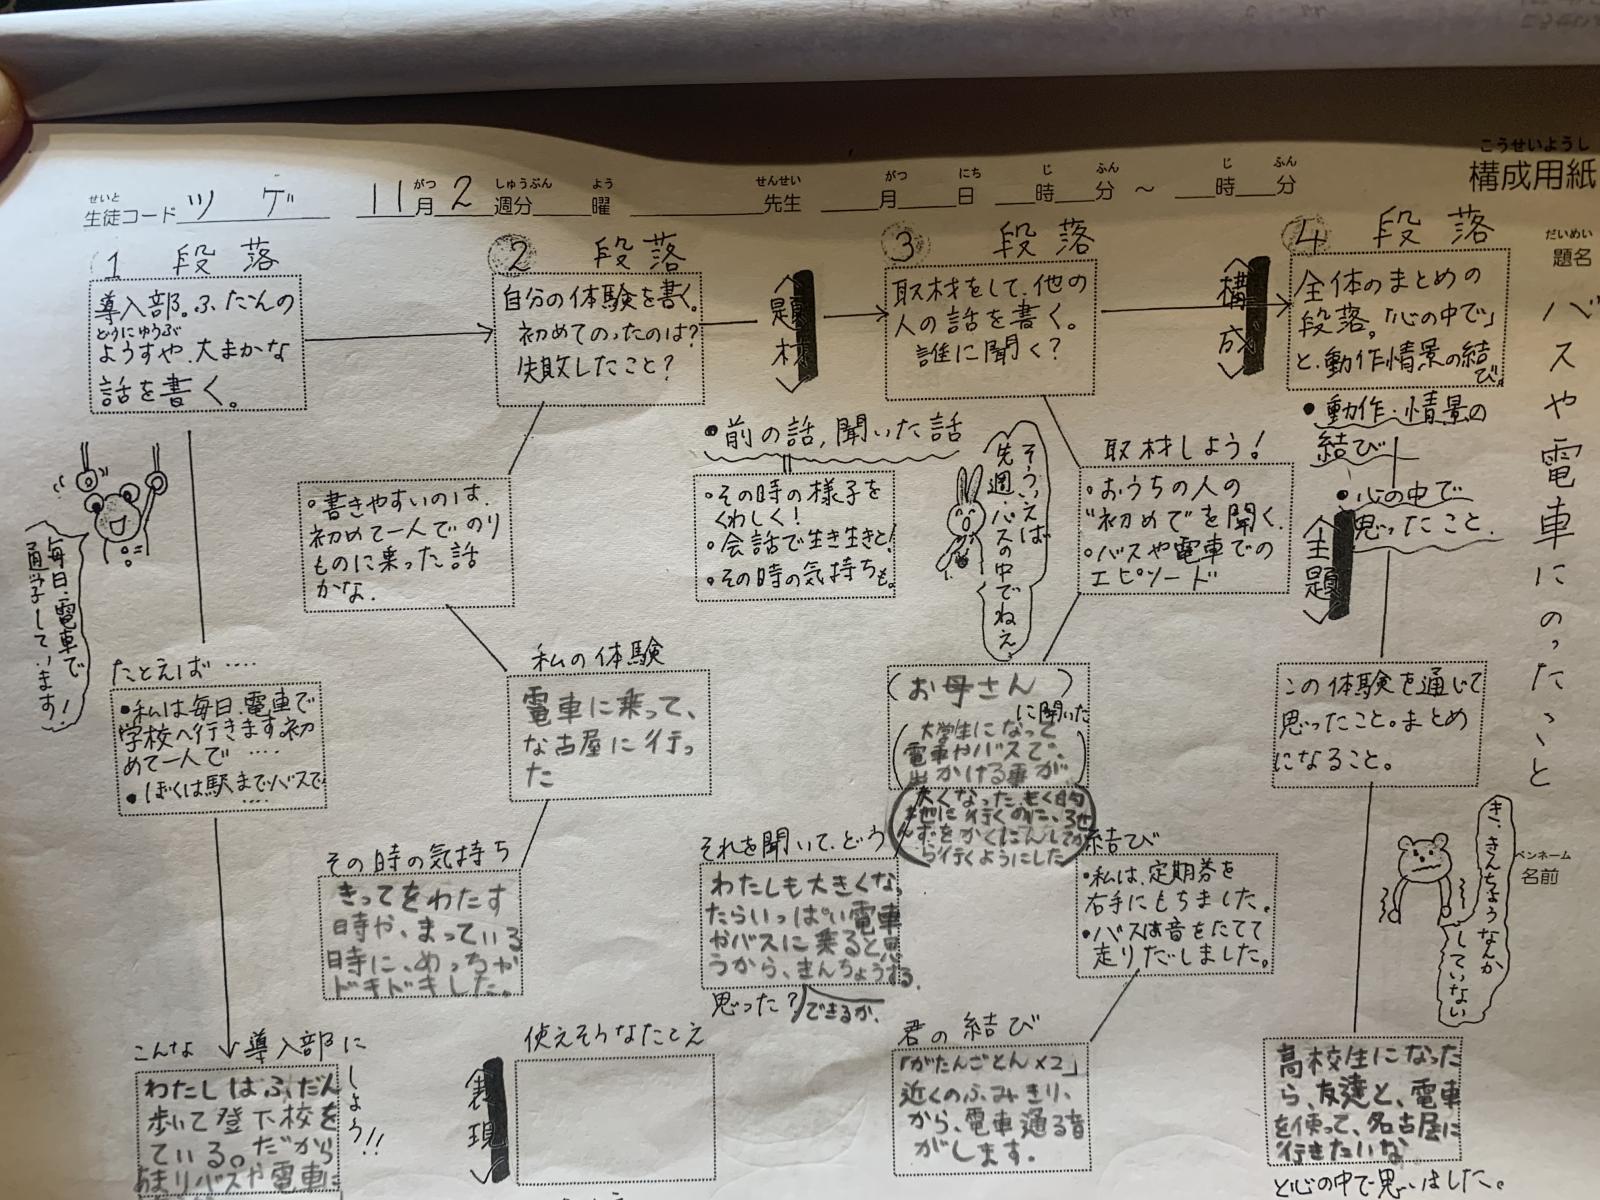 こうせいようし
構成用紙
せいと がつ しゅうぶん よう せんせい がつ にち じ ふん じ ふん
生徒コード ツゲ 11月2週分 曜 先生 月 日 時 分 ～ 時 分
だいめい
題名
バスや電車にのったこと
ペンネーム
名前
1 段落
導入部。ふだんの
どうにゅうぶ
ようすや、大まかな
話を書く。
毎日、電車で
通学しています!
たとえば‥‥
・私は毎日、電車で
学校へ行きます。初
めて一人で‥‥
・ぼくは駅までバスで
‥‥
こんな導入部に
しよう!!
わたしはふだん
歩いて登下校を
ている。だから
あまりバスや電車に
2 段落
自分の体験を書く。
初めてのったのは?
失敗したこと?
・書きやすいのは、
初めて一人でのり
ものに乗った話
かな。
私の体験
電車に乗って、
な古屋に行っ
た
その時の気持ち
きってをわたす
時や、まっている
時に、めっちゃ
ドキドキした。
<題材>
・前の話,聞いた話
・その時の様子を
くわしく!
・会話で生き生きと!
・その時の気持ちも。
<表現>
使えそうなたとえ
3 段落
取材をして、他の
人の話を書く。
誰に聞く?
そういえば
先週、バスの中でねえ、
取材しよう!
・おうちの人の
"初めて"を聞く。
・バスや電車での
エピソード
(お母さん)
に聞いた
大学生になって
電車やバスで、
出かける事が
大くなった。もく的
地に行くのに、
をかくにんしてか
ら行くようにした
それを聞いて、どう
思った?
わたしも大きくな
たらいっぱい電車
やバスに乗ると思
うから、きんちょうする。
できるか。
<構成>
4 段落
全体のまとめの
段落。「心の中で」
と、動作情景の結
び。
・動作・情景の
結び
・心の中で
思ったこと。
<主題>
この体験を通じて
思ったこと。まとめ
になること。
き、きんちょうなんか
していない
結び
・私は、定期券を
右手にもちました。
・バスは音をたてて
走りだしました。
君の結び
「がたんごとん×2」
近くのふみきり、
から、電車通る音
がします。
高校生になった
ら、友達と、電車
を使って、名古屋に
行きたいな
と心の中で思いました。